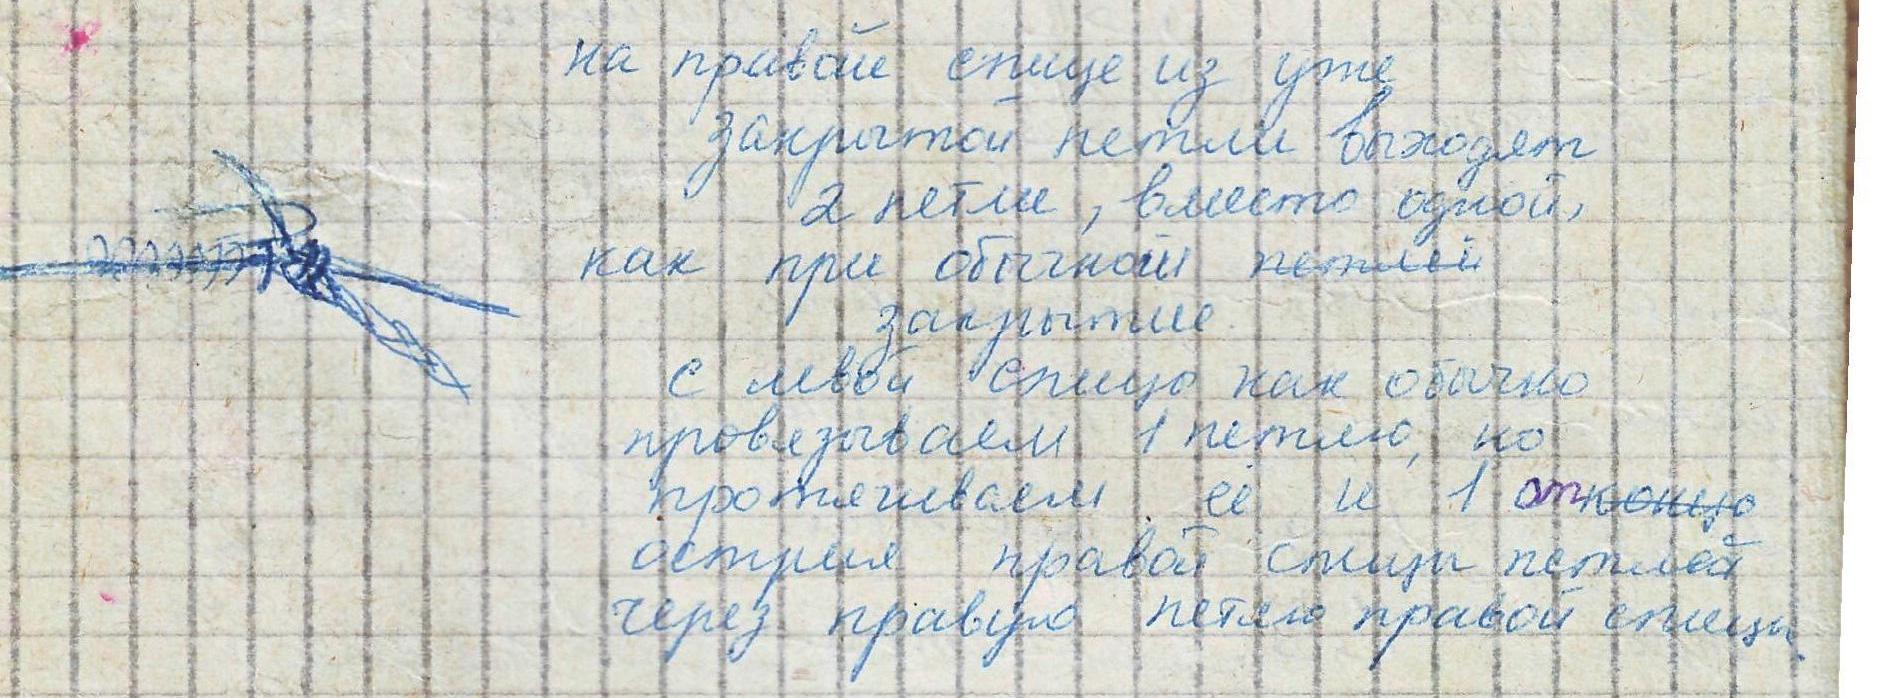 на правой спице из уже
закрытой петли выходят
2 петли, вместо одной,
как при обычной петлей
закрытие
с левой спицы как обычно
провязываем 1 петлю, но
протягиваем её и 1 от конца
острия правой спицы петлей
через правую петлю правой спицы.